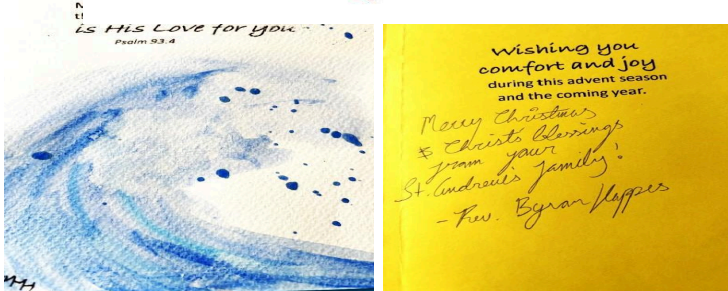 is His Love for you
Psalm 93:4
Wishing you
comfort and joy
during this advent season
and the coming year.
Merry Christmas
& Christ's blessings
from your
St. Andrew's family!
- Rev. Byron